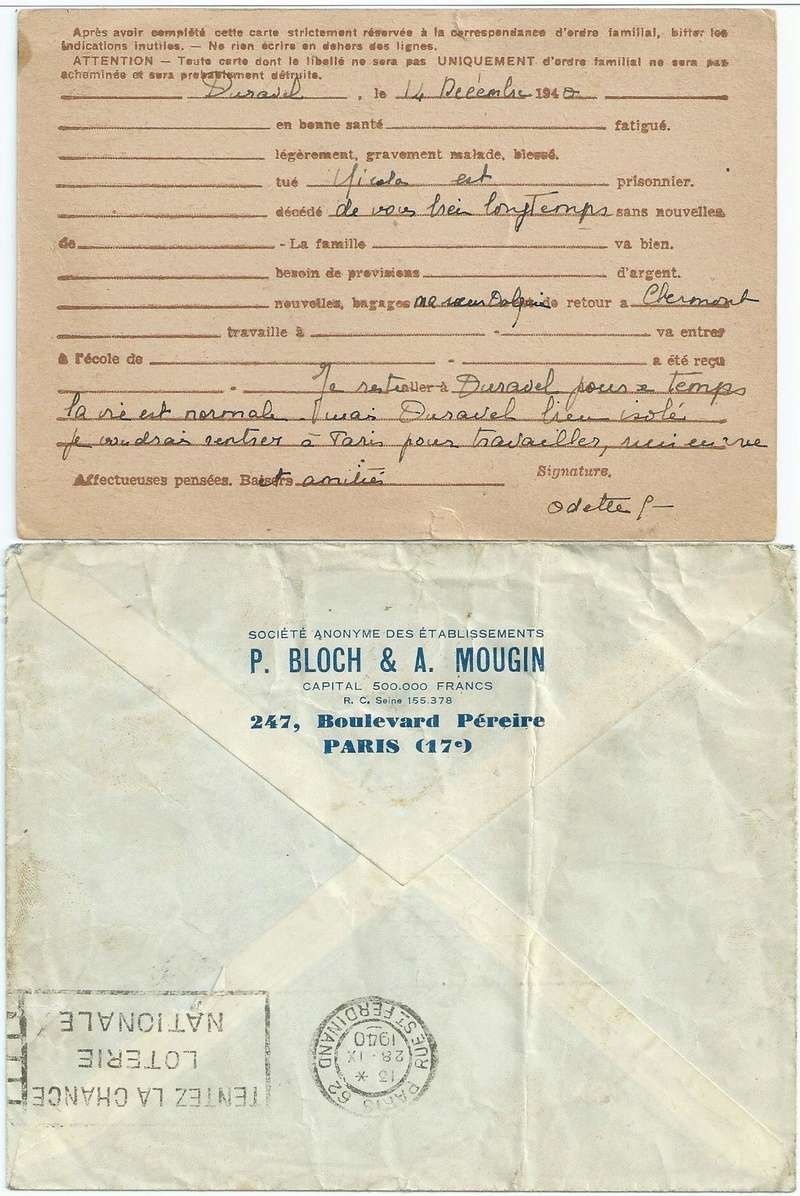 Après avoir complété cette carte strictement réservée à la correspondance d'ordre familial, biffer les
indications inutiles. — Ne rien écrire en dehors des lignes.
ATTENTION — Toute carte dont le libellé ne sera pas UNIQUEMENT d'ordre familial ne sera pas
acheminée et sera probablement détruite.
Duravel, le 14 Décembre 1940
en bonne santé fatigué.
légèrement, gravement malade, blessé.
tué est prisonnier.
décédé de vous bien longtemps sans nouvelles
de - La famille va bien.
besoin de provisions d'argent.
nouvelles, bagages ma sœur de retour à Chermont
travaille à - va entrer
à l'école de - a été reçu
- Je reste aller à Duravel pour temps
la vie est normale mais Duravel bien isolé
je voudrais rentrer à Paris pour travailler,
Affectueuses pensées. Baisers et amitiés Signature.
Odette
SOCIÉTÉ ANONYME DES ÉTABLISSEMENTS
P. BLOCH & A. MOUGIN
CAPITAL 500.000 FRANCS
R. C. Seine 155.378
247, Boulevard Péreire
PARIS (17e)
TENTEZ LA CHANCE
LOTERIE
NATIONALE
PARIS 62
13 *
28 - IX
1940
RUE ST FERDINAND